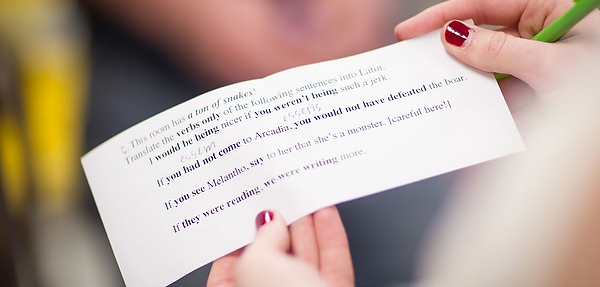 This room has a ton of snakes!
Translate the verbs only of the following sentences into Latin.
I would be being nicer if you weren't being such a jerk.
essem esses
If you had not come to Arcadia, you would not have defeated the boar.
If you see Melantho, say to her that she's a monster. [careful here!]
If they were reading, we were writing more.